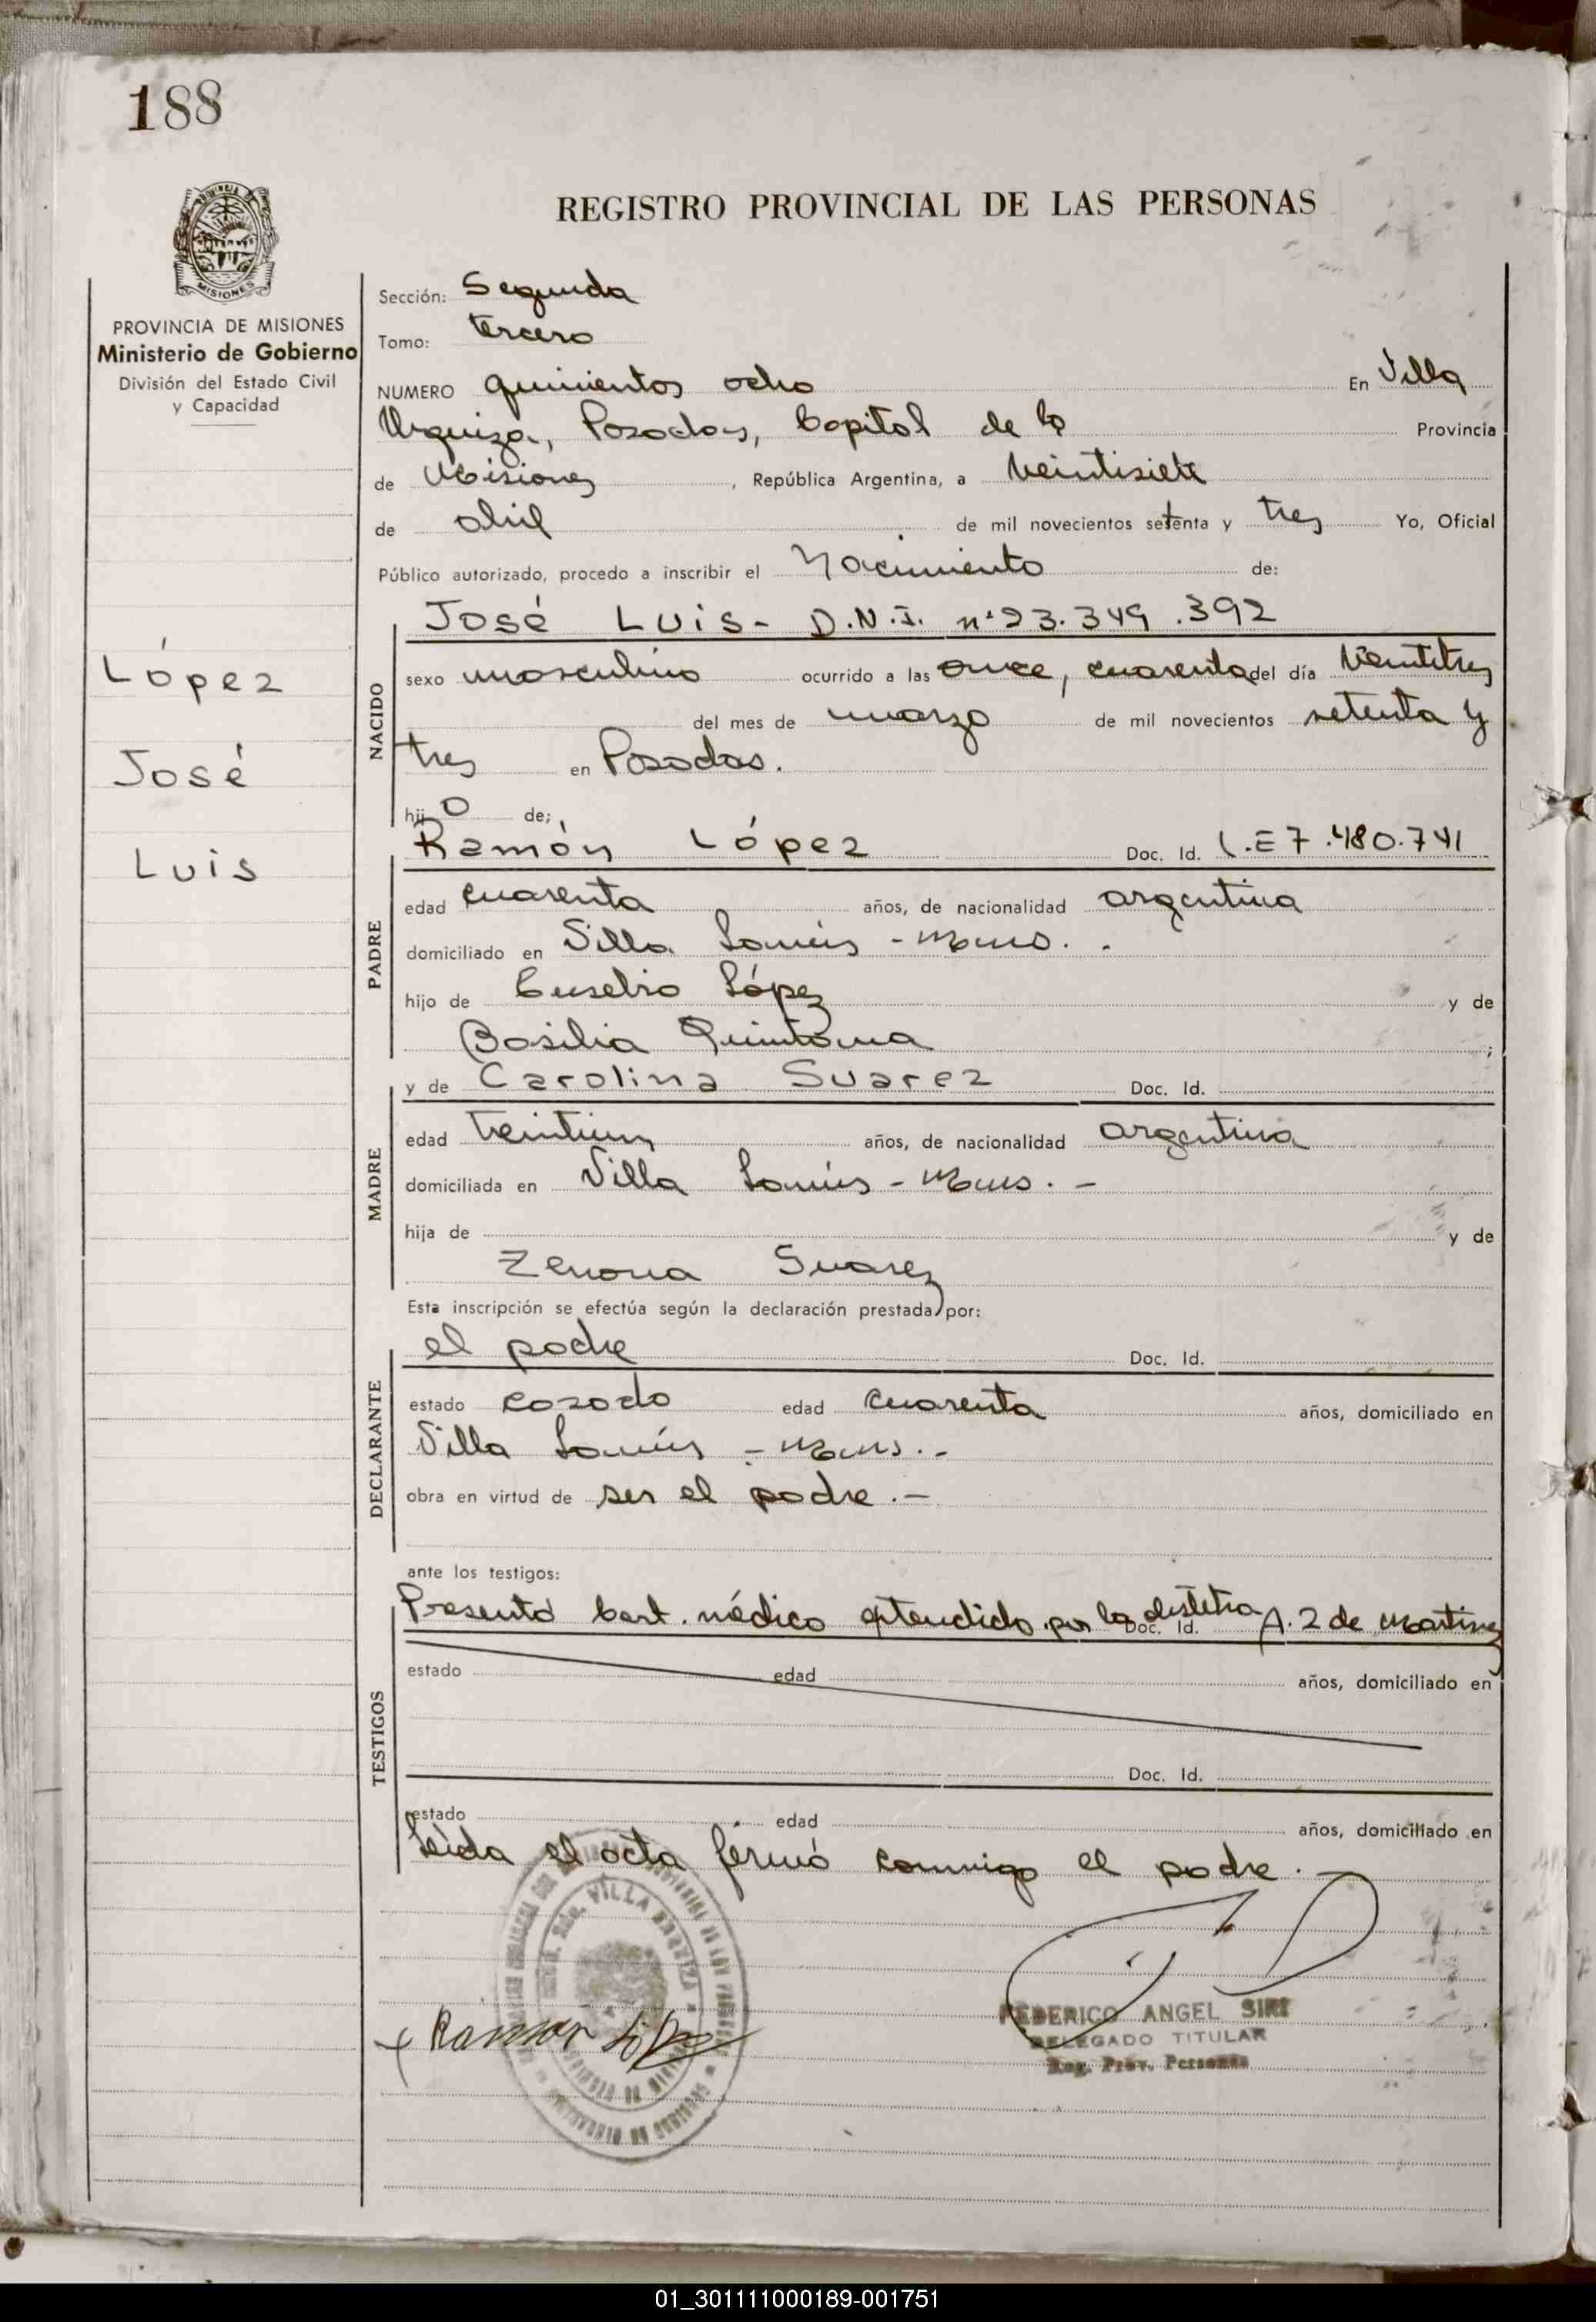 188
REGISTRO PROVINCIAL DE LAS PERSONAS
MISIONES
PROVINCIA DE MISIONES
Ministerio de Gobierno
División del Estado Civil
y Capacidad
López
José
Luis
Sección: Segunda
Tomo: tercero
NUMERO quinientos ocho En Villa
Urquiza, Posadas, Capital de la Provincia
de Misiones, República Argentina, a veintisiete
de abril de mil novecientos setenta y tres Yo, Oficial
Público autorizado, procedo a inscribir el Nacimiento de:
NACIDO
José Luis - D.N.I. nº 23.349.392
sexo masculino ocurrido a las once, cuarenta del día veintitres
del mes de marzo de mil novecientos setenta y
tres en Posadas.
hijo de;
PADRE
Ramón López Doc. Id. L.E 7.480.741
edad cuarenta años, de nacionalidad argentina
domiciliado en Villa Lanús - Mnes. -
hijo de Eusebio López y de
Basilia Quintana;
MADRE
y de Carolina Suarez Doc. Id.
edad veintiun años, de nacionalidad argentina
domiciliada en Villa Lanús - Mnes. -
hija de y de
Zenona Suarez
Esta inscripción se efectúa según la declaración prestada por:
DECLARANTE
el padre Doc. Id.
estado casado edad cuarenta años, domiciliado en
Villa Lanús - Mnes. -
obra en virtud de ser el padre. -
ante los testigos:
TESTIGOS
Presentó Cert. médico extendido por la obstetra A. Z de Martinez Doc. Id.
estado edad años, domiciliado en
Doc. Id.
estado edad años, domiciliado en
Leída el acta firmó conmigo el padre. -
VILLA URQUIZA
Ramón López
FEDERICO ANGEL SIRI
DELEGADO TITULAR
Reg. Prov. Personas
01_301111000189-001751